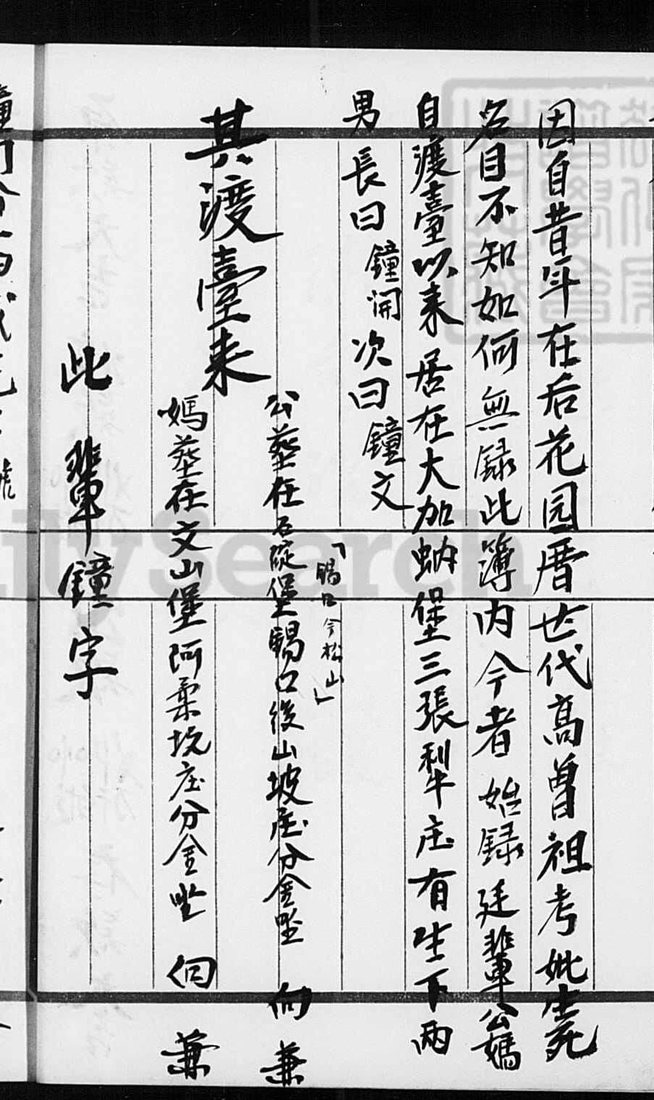 因自昔年在后花园厝世代高曾祖考妣生死
名目不知如何無録此簿内今者始録廷輩公媽
自渡臺以来居在大加蚋堡三張犁庄有生下兩
男長曰鐘開次曰鐘文
其渡臺来
「錫口今松山」
公塟在石碇堡錫口後山坡庄分金坐 向 兼
媽塟在文山堡阿柔坑庄分金坐 向 兼
此輩鐘字